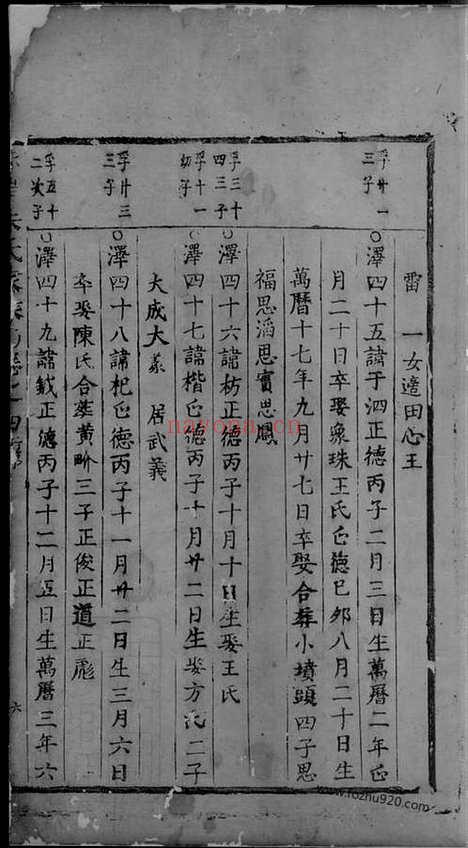 雷　一女適田心王
孚廿一三子
○澤四十五諱于泗正德丙子二月三日生萬曆二年正
月二十日卒娶衆珠王氏正德己卯八月二十日生
萬曆十七年九月廿七日卒娶合葬小墳頭四子思
福思滔思寳思鳳
孚三十四三子
○澤四十六諱枋正德丙子十月十日生娶王氏
孚十一幼子
○澤四十七諱楷正德丙子十月廿二日生娶方氏二子
大成大㒸　居武義
孚廿三三子
○澤四十八諱杞正德丙子十一月廿二日生三月六日
卒娶陳氏合葬黃畈三子正俊正道正彪
孚五十二次子
○澤四十九諱鉞正德丙子十二月五日生萬曆三年六
六
nayona.cn
www.fozhu920.com